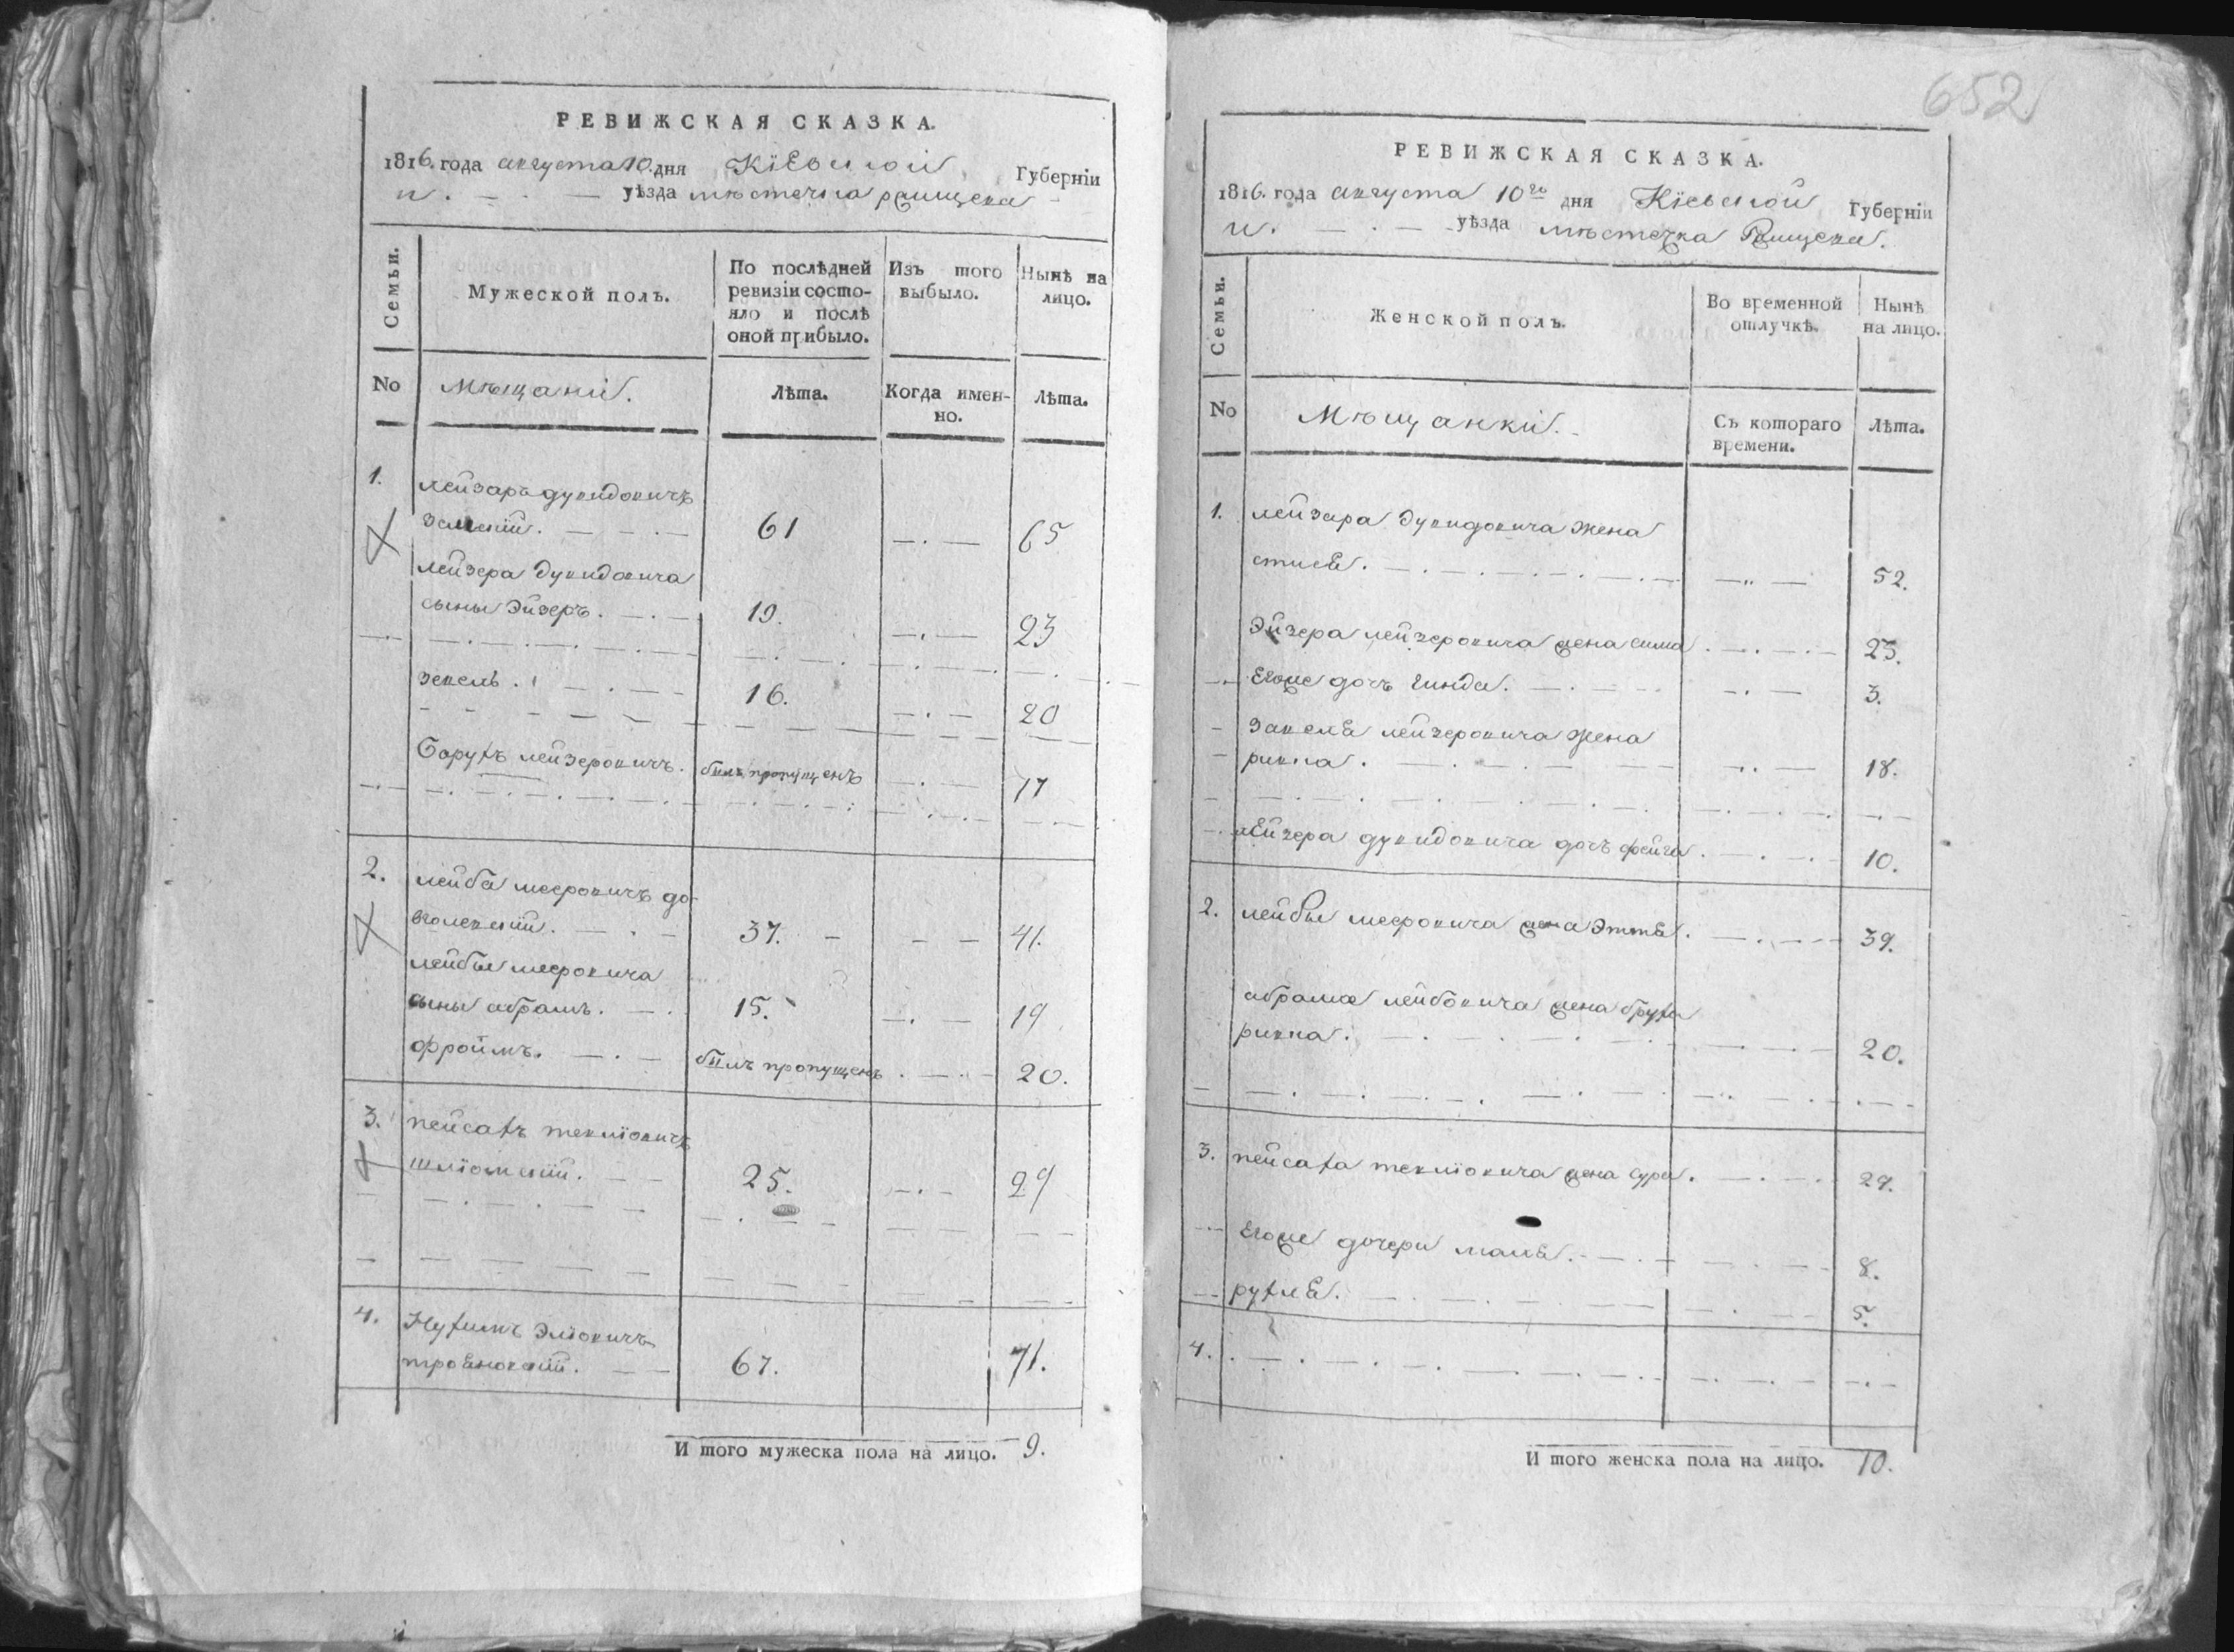 РЕВИЖСКАЯ СКАЗКА.
1816. года августа 10. дня Кіевской Губерніи
и. — . — уѣзда мѣстечка ращева
Семьи.
Мужеской полъ.
По послѣдней ревизіи состояло и послѣ оной прибыло.
Изъ того выбыло.
Нынѣ на лицо.
No
Мѣщани.
Лѣта.
Когда именно.
Лѣта.
1. лейзаръ дувидовичъ
61 65
лейзера дувидовича
сыны Эйзеръ. 19. 23
зекель. 16. 20
Барухъ лейзеровичъ. былъ пропущенъ 17
2. лейба мееровичъ до
вгалевскій. 37. 41.
лейбы мееровича
сыны абрамъ. 15. 19
фроимъ. былъ пропущенъ 20.
3. пейсахъ текліовичъ
шліомскій. 25. 29
4. Нухимъ Эліовичъ
трояновскій. 67. 71.
И того мужеска пола на лицо. 9.
652
РЕВИЖСКАЯ СКАЗКА.
1816. года августа 10го дня Кіевской Губерніи
и. — . — уѣзда мѣстечка Ращева.
Семьи.
Женской полъ.
Во временной отлучкѣ.
Нынѣ на лицо.
No
Мѣщанки.
Съ котораго времени.
Лѣта.
1. лейзера дувидовича жена
стися. 52.
Эйзера лейзеровича жена сима 23.
Егоже дочъ гинда. 3.
Закеля лейзеровича жена
ривка. 18.
лейзера дувидовича дочъ фейга 10.
2. лейбы мееровича жена Эття. 39.
абрама лейбовича жена бруха
ривка. 20.
3. пейсаха текліовича жена сура. 29.
Егоже дочери маля. 8.
рухля. 5.
4.
И того женска пола на лицо. 10.